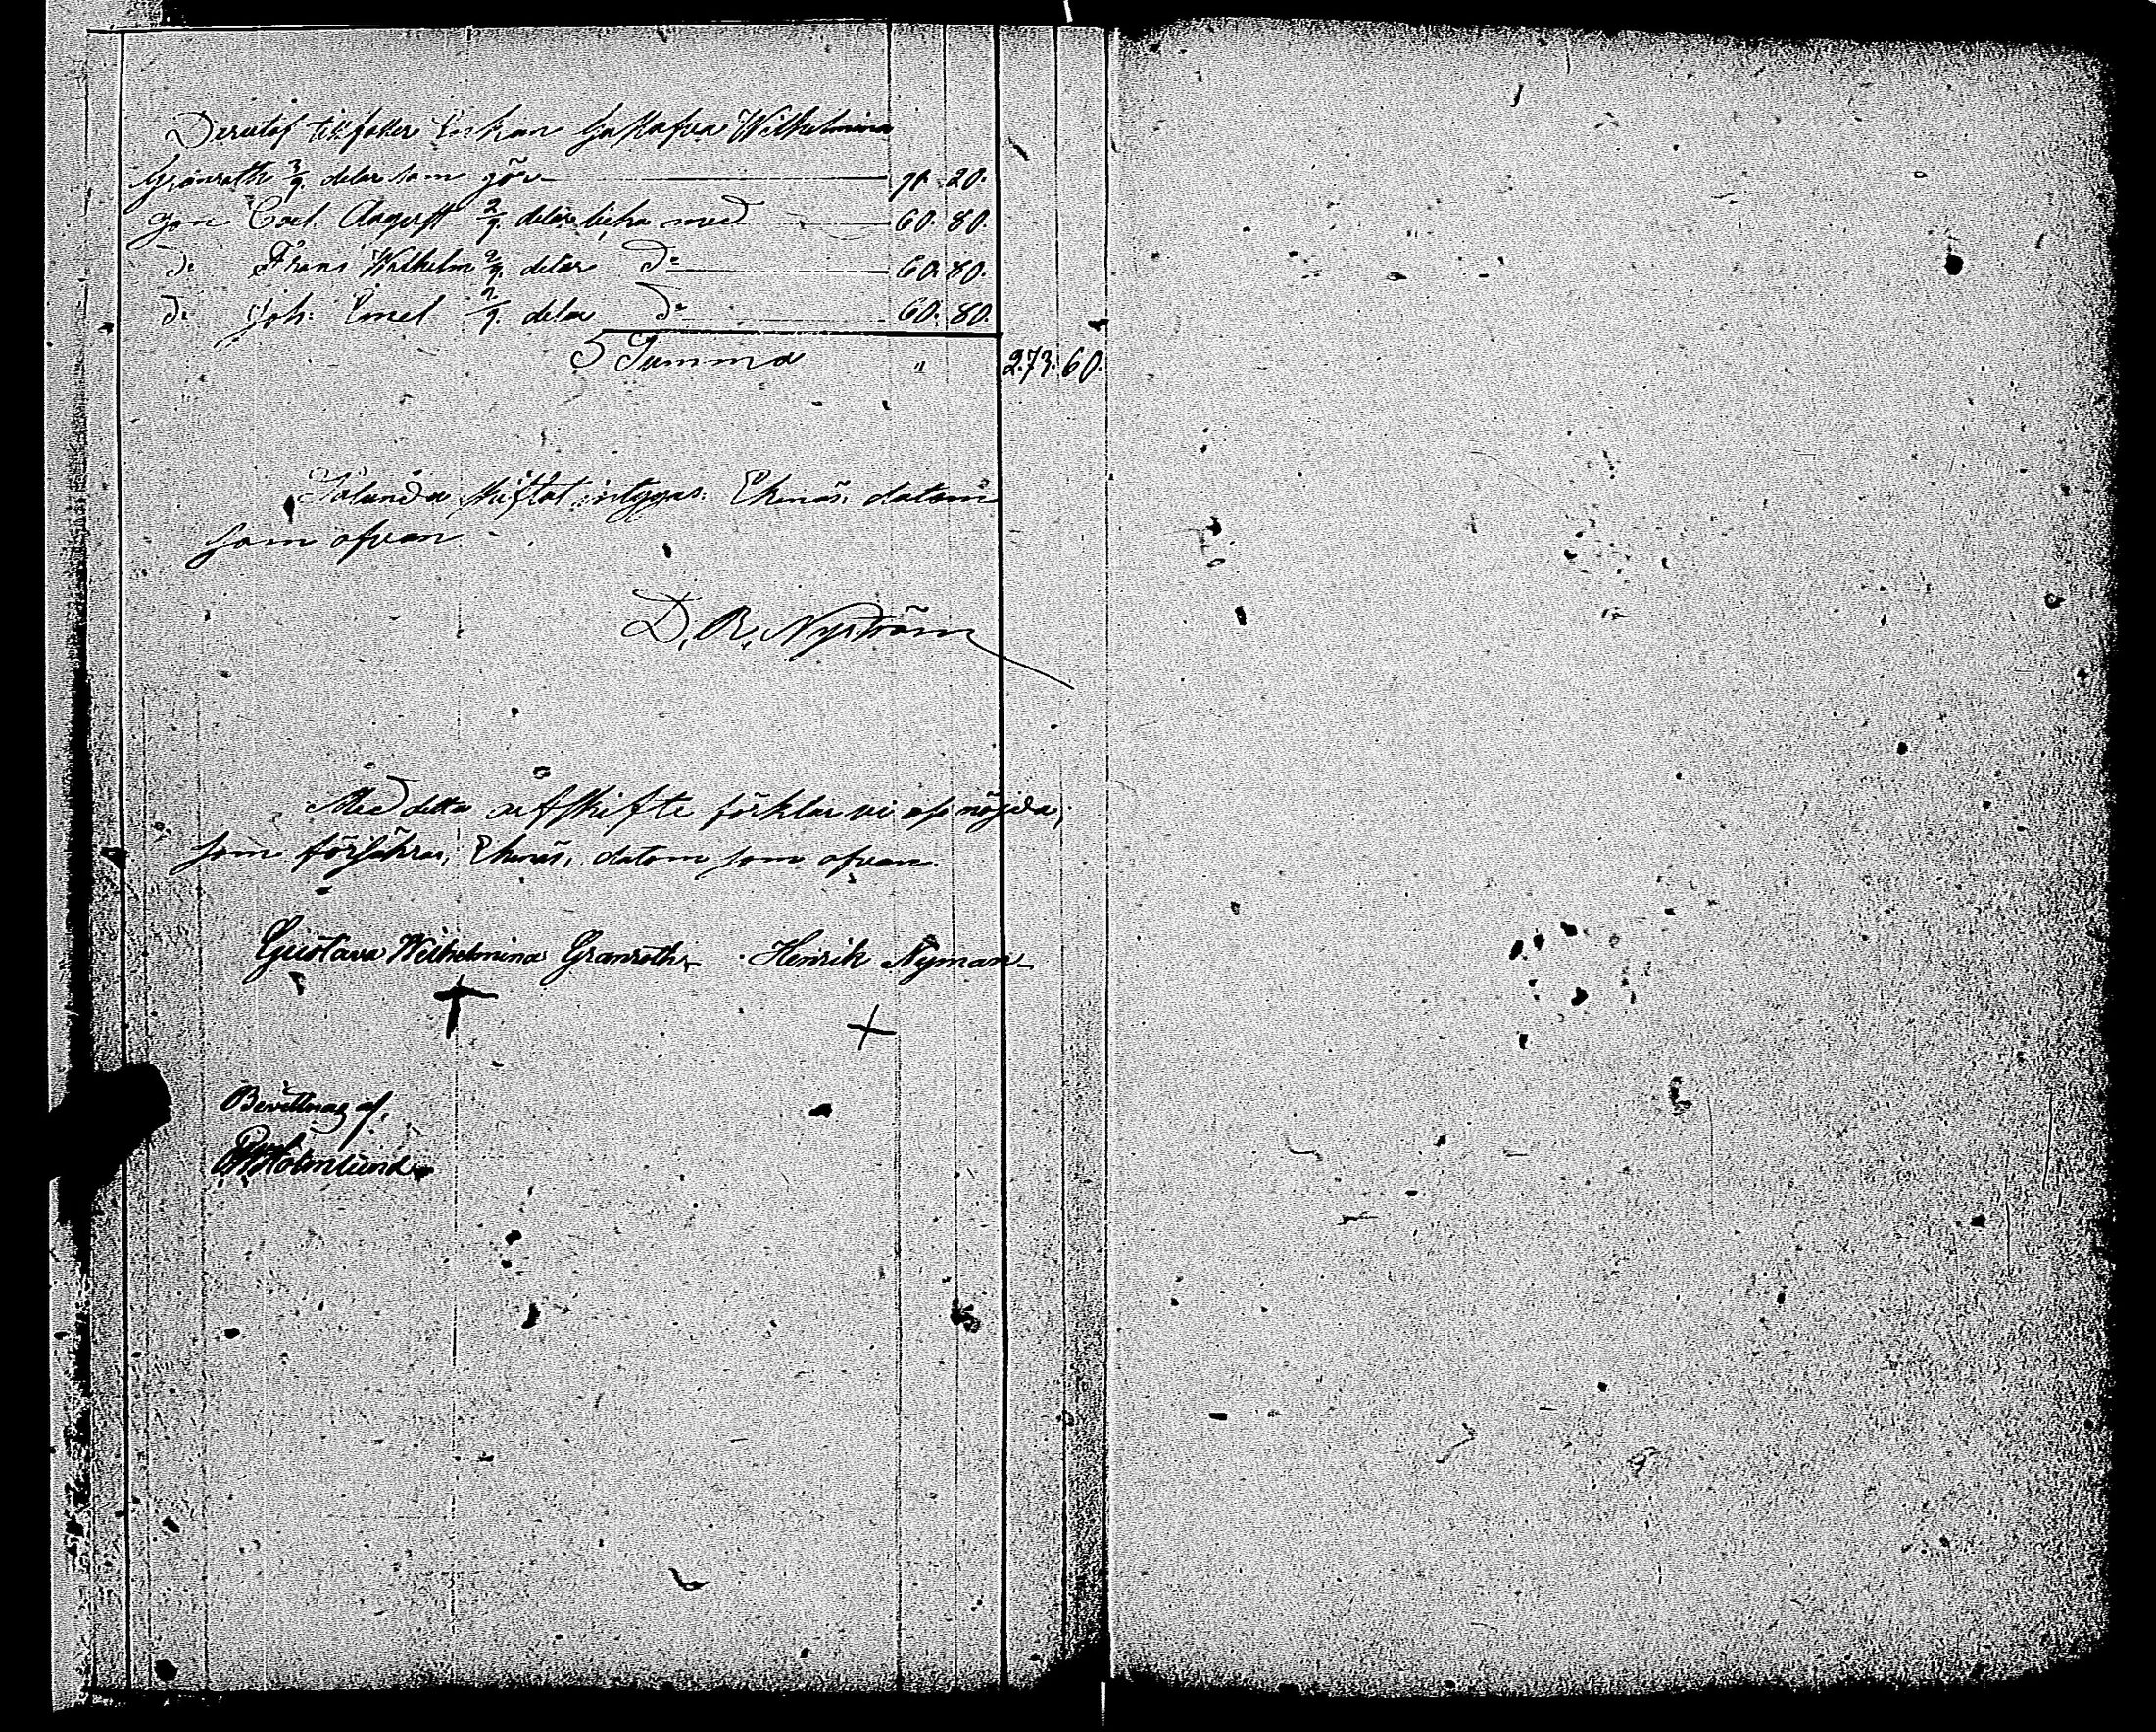 Derutaf tillfaller Enkan Gustafva Wilhelmina
Granroth 3/9 delar som gör 91. 20.
Son Carl August 2/9 delar lika med 60. 80.
do Frans Wilhelm 2/9 delar do 60. 80.
do Joh: Emel 2/9 delar do 60. 80.
Summa " 273. 60.
Sålunda skiftat intygas. Ekenäs, datom
som ofvan.
D. R. Nyström
Med detta arfskifte förklar vi oss nöjda,
som försäkras, Ekenäs, datom som ofvan.
Gustava Wilhelmina Granroth Henrik Nyman
Bevittnas af,
Holmlund